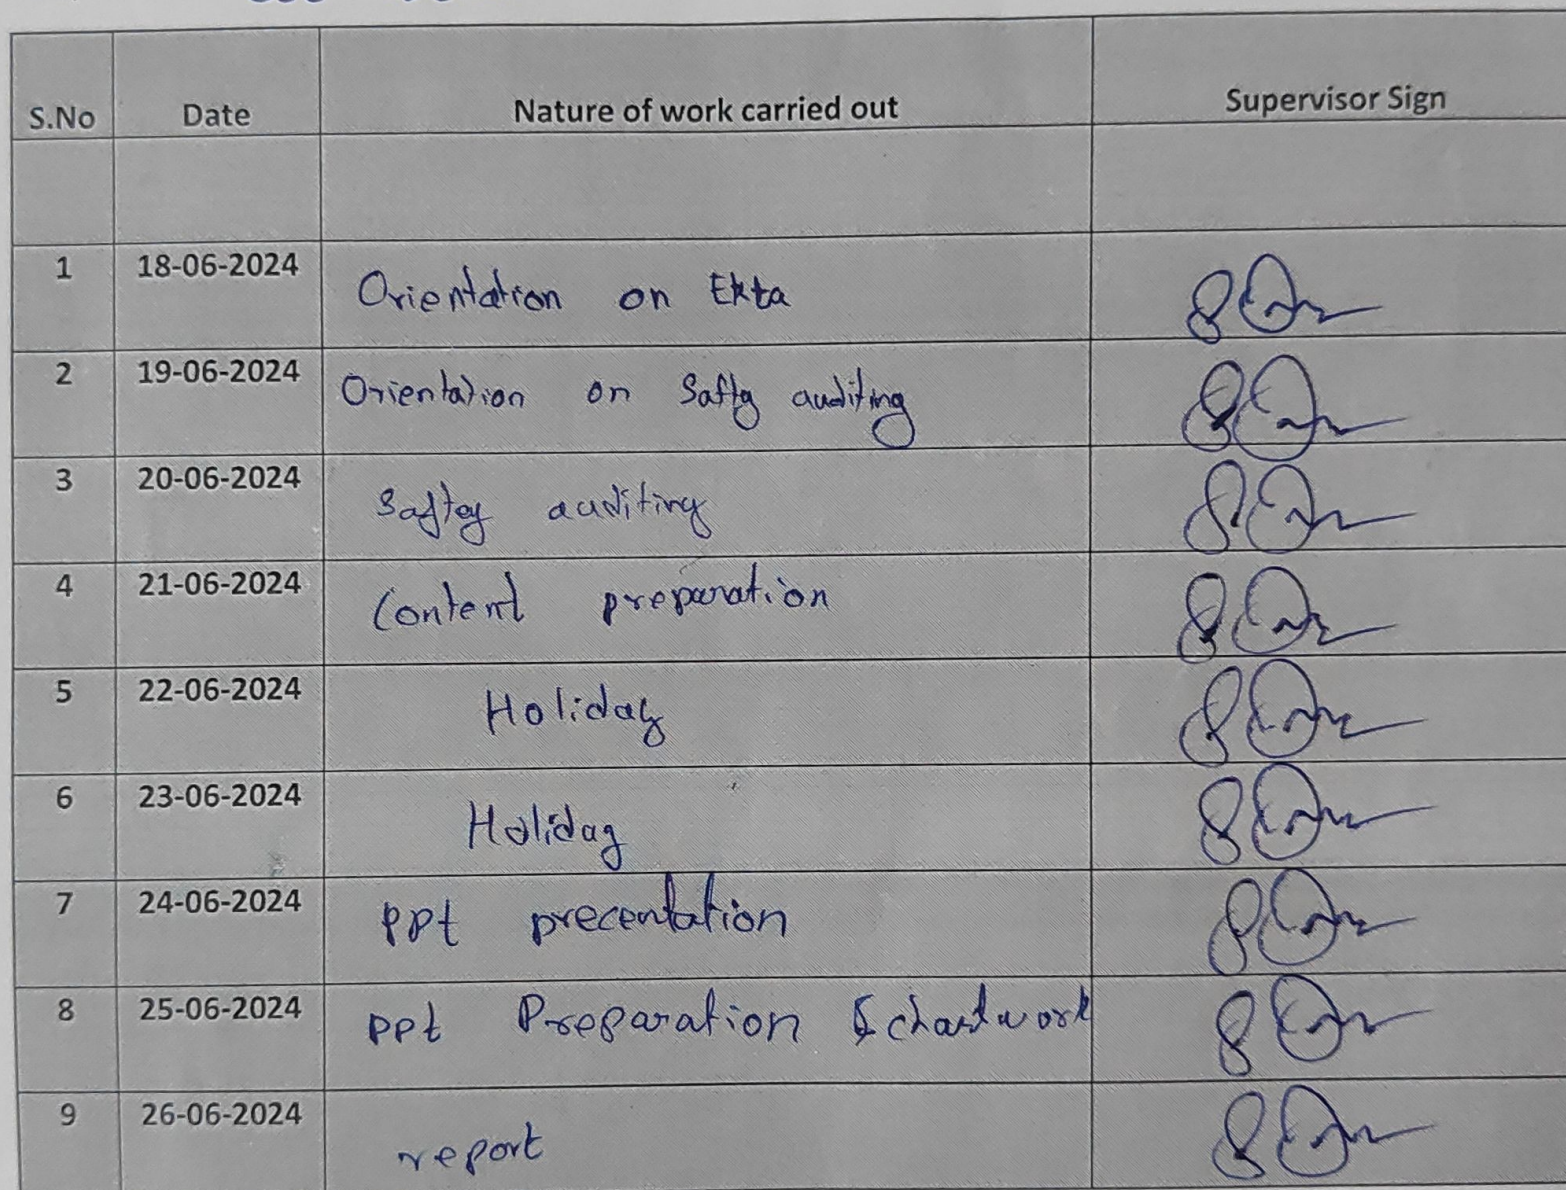 S.No Date Nature of work carried out Supervisor Sign
1 18-06-2024 Orientation on Ekta
2 19-06-2024 Orientation on Safty auditing
3 20-06-2024 Saftey auditing
4 21-06-2024 Content preparation
5 22-06-2024 Holiday
6 23-06-2024 Holiday
7 24-06-2024 ppt precentation
8 25-06-2024 ppt Preparation & chartwork
9 26-06-2024 report